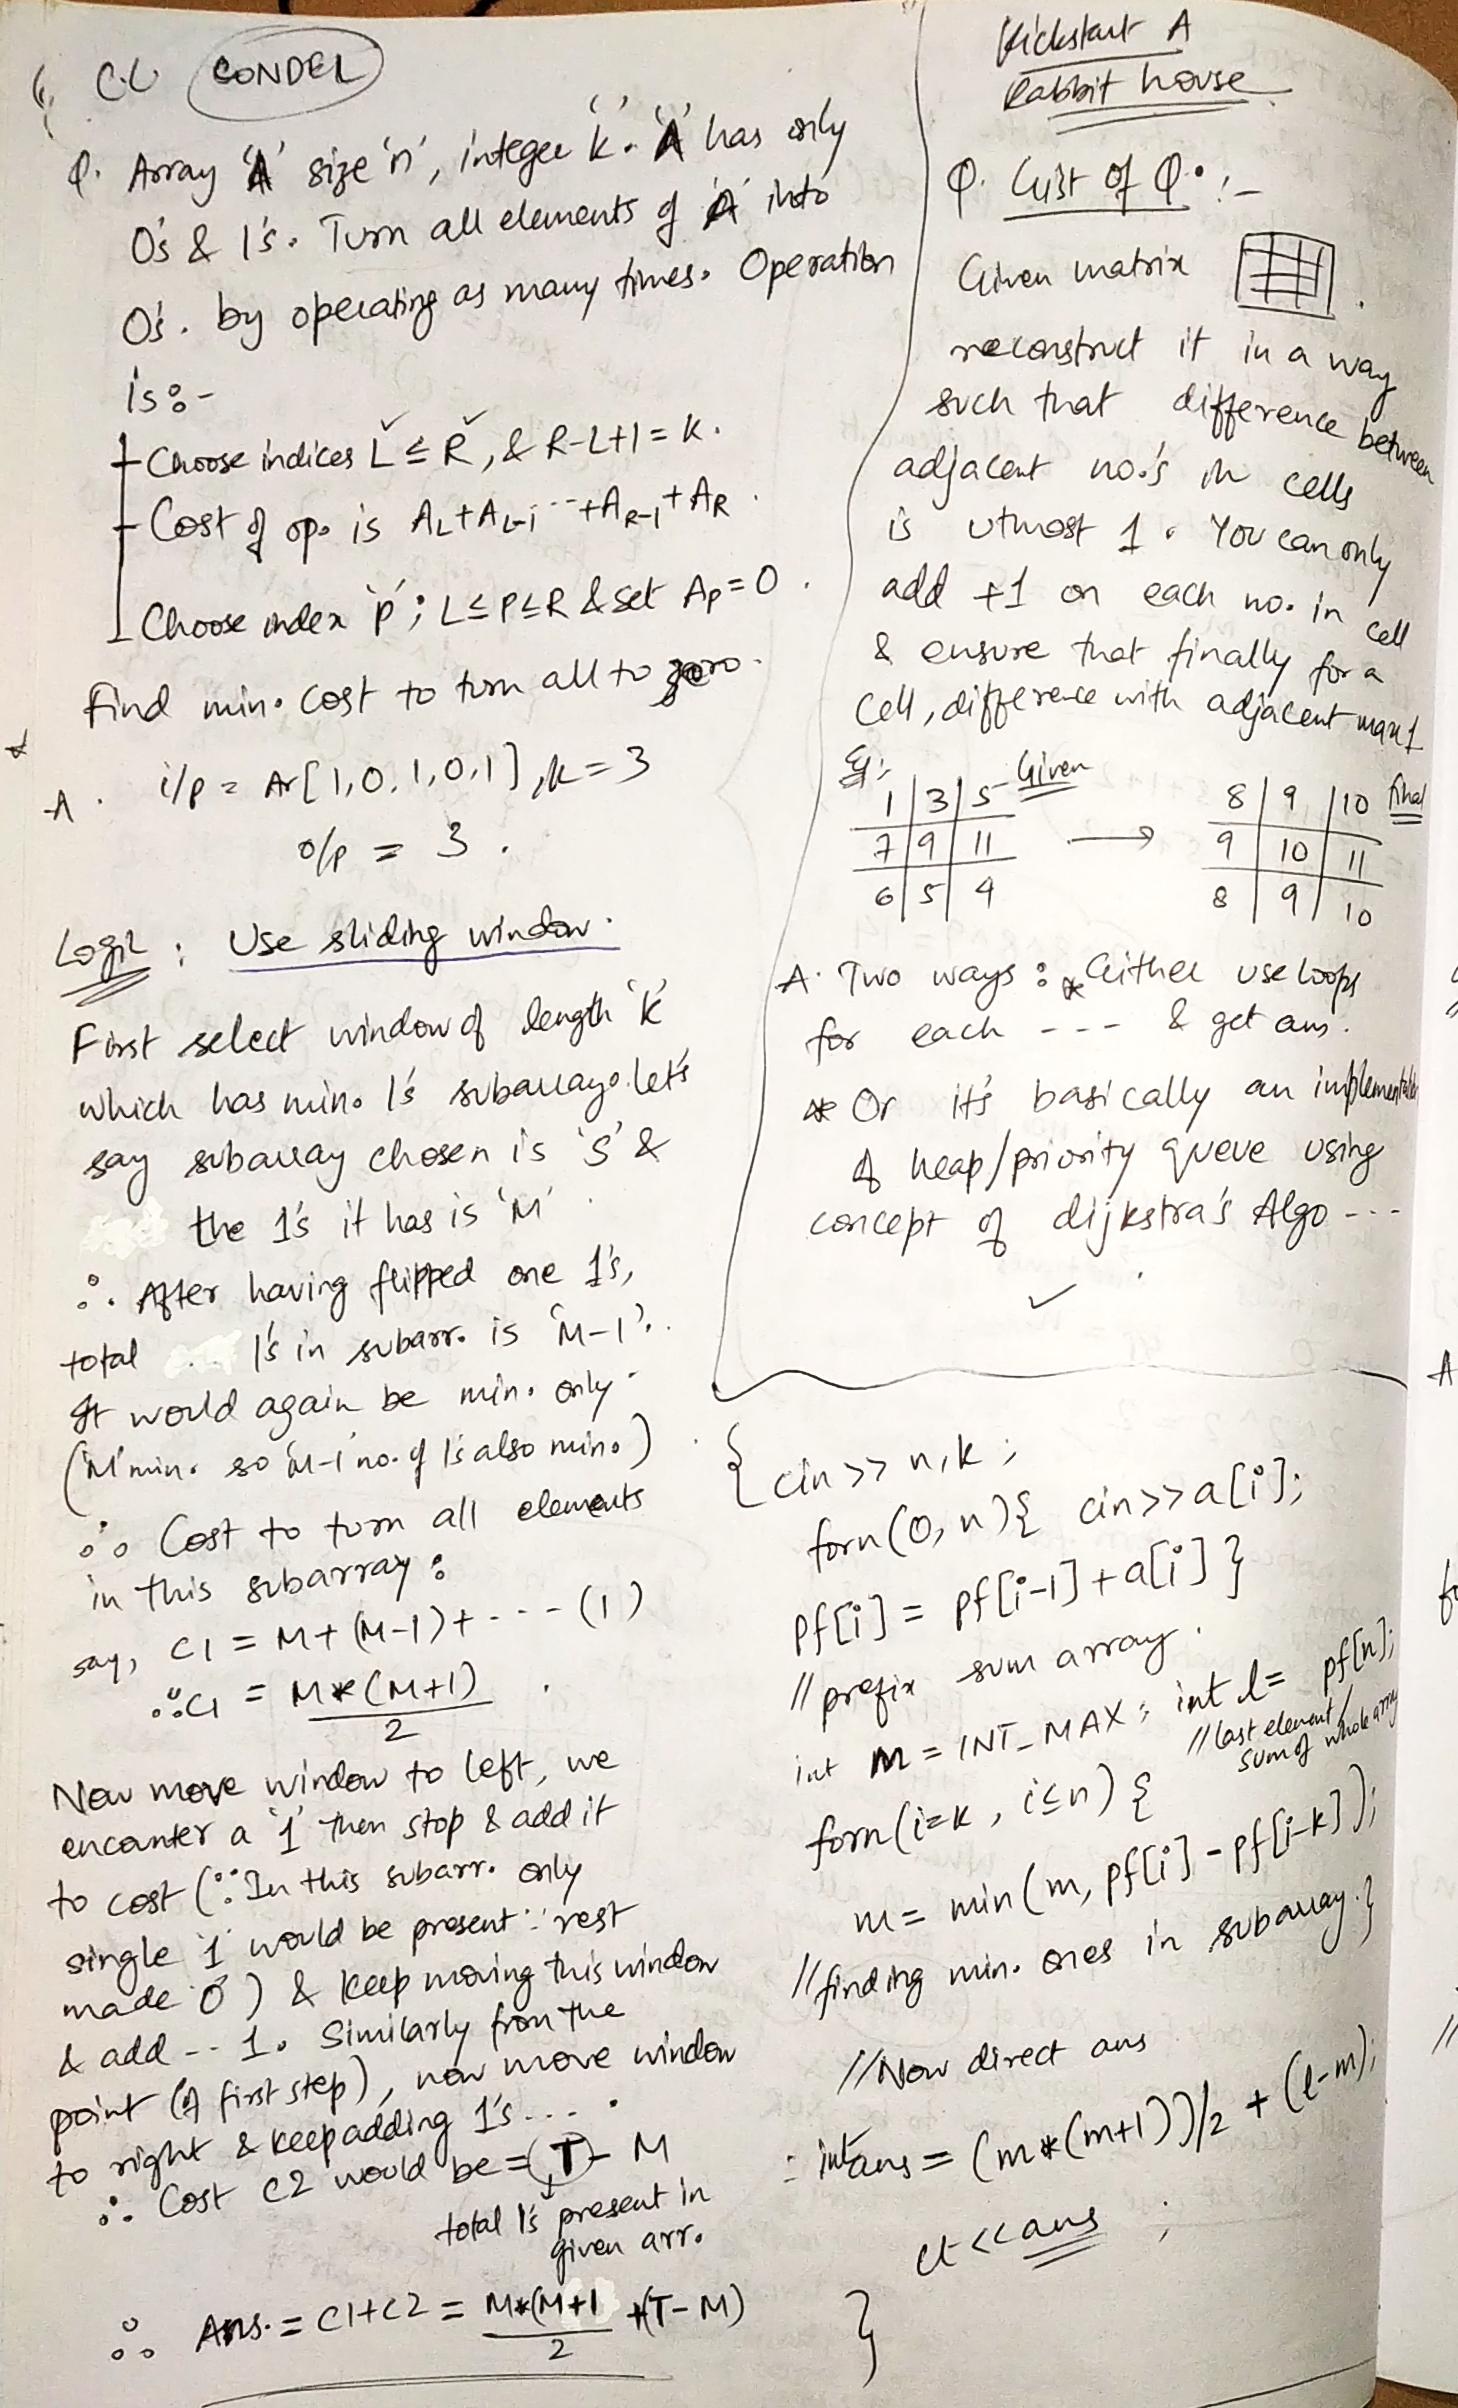 C.C CONDEL
Q. Array 'A' size 'n', integer 'k'. 'A' has only
0's & 1's. Turn all elements of 'A' into
0's. by operating as many times. Operation
is :-
- Choose indices L ≤ R, & R-L+1 = K.
- Cost of op. is AL+AL-1 ---+AR-1+AR.
- Choose index 'p'; L≤P≤R & set Ap=0.
find min. cost to turn all to zero.
A. i/p = Ar[1,0,1,0,1], k=3
o/p = 3.
Logic : Use sliding window.
First select window of length 'k'
which has min. 1's subarray. let's
say subarray chosen is 'S' &
the 1's it has is 'M'.
∴ After having flipped one 1's,
total 1's in subarr. is 'M-1'.
It would again be min. only
('M' min. so 'M-1' no. of 1's also min.)
∴ Cost to turn all elements
in this subarray :
say, C1 = M+(M-1)+ - - - (1)
∴ C1 = M*(M+1)
2
Now move window to left, we
encanter a '1' then stop & add it
to cost (∵ In this subarr. only
single '1' would be present ∵ rest
made '0') & keep moving this window
& add -- 1. Similarly from the
point (of first step), now move window
to right & keep adding 1's....
∴ Cost C2 would be = T - M
total 1's present in
given arr.
∴ Ans. = C1+C2 = M*(M+1 +(T-M)
2
Kickstart A
Rabbit house
Q. Gist of Q. :-
Given matrix .
reconstruct it in a way
such that difference between
adjacent no.'s in cells
is utmost 1. You can only
add +1 on each no. in cell
& ensure that finally for a
cell, difference with adjacent max 1
Eg: Given final
1 | 3 | 5 8 | 9 | 10
7 | 9 | 11 → 9 | 10 | 11
6 | 5 | 4 8 | 9 | 10
A. Two ways : * Either use loops
for each --- & get ans.
* Or it's basically an
of heap/priority queue using
concept of dijkstra's Algo ---
{ cin >> n,k ;
forn(0,n){ cin>>a[i];
pf[i] = pf[i-1]+a[i] }
// prefix sum array.
int m = INT_MAX ; int l = pf[n];
// last element/
sum of whole array
forn(i=k, i≤n) {
m = min(m, pf[i]-pf[i-k]);
// finding min. ones in subarray. }
// Now direct ans
int ans = (m*(m+1))/2 + (l-m);
ct << ans ;
}